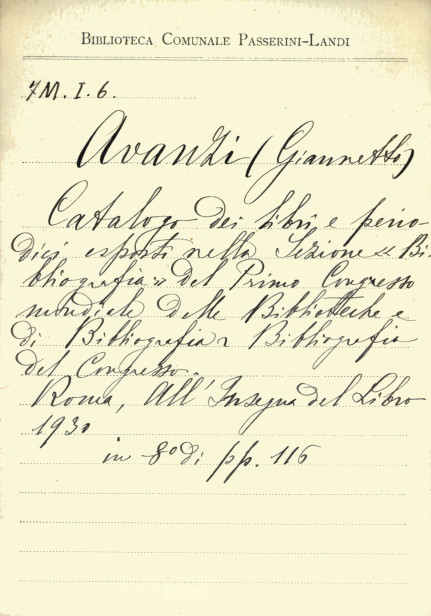 BIBLIOTECA COMUNALE PASSERINI-LANDI
7M. I. 6.
Avanzi (Giannetto)
Catalogo dei libri e perio-
dici esposti nella Sezione « Bi-
bliografia » del Primo Congresso
mondiale delle Biblioteche e
di Bibliografia e Bibliografia
del Congresso.
Roma, All'Insegna del Libro
1930
in 8° di pp. 116